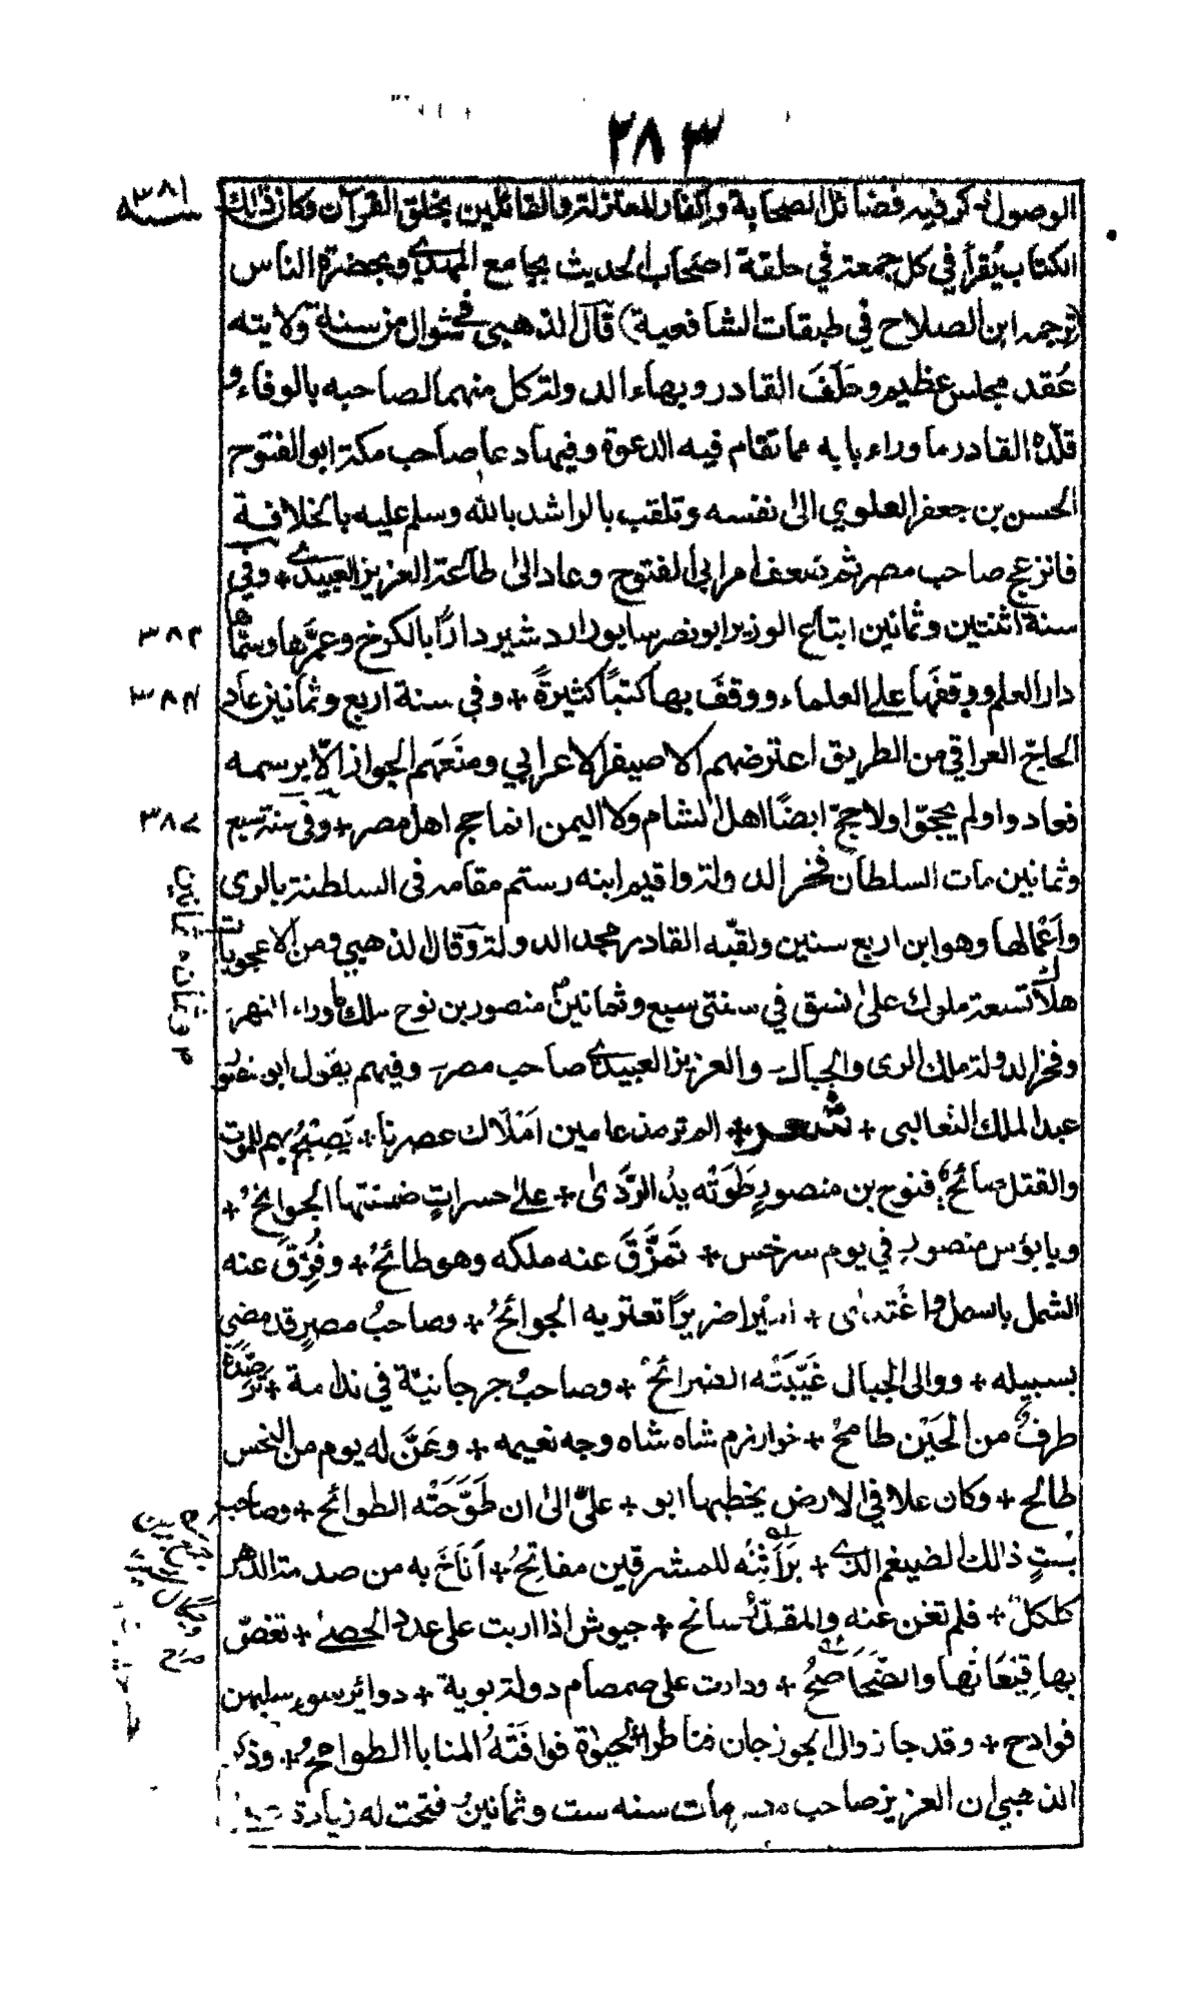 ٢٨٣
سنه ٣٨١
الوصول ذكر فيه فضائل الصحابة وإكفار المعتزلة والقائلين بخلق القرآن وكان ذلك
الكتاب يُقرأ في كل جمعة في حلقة اصحاب الحديث بجامع المهدي وبحضرة الناس
(ترجمه ابن الصلاح في طبقات الشافعية) قال الذهبي في شوال من سنة ولايته
عُقد مجلس عظيم وحَلَفَ القادر وبهاء الدولة كل منهما لصاحبه بالوفاء و
قلّده القادر ما وراء بابه مما تقام فيه الدعوة وفيها دعا صاحب مكة ابو الفتوح
الحسن بن جعفر العلوي الى نفسه وتلقب بالراشد بالله وسلم عليه بالخلافة
فانزعج صاحب مصر ثم ضعف امر ابي الفتوح وعاد الى طاعة العزيز العبيدي + وفي
سنة اثنتين وثمانين ابتاع الوزير ابو نصر سابور اردشير دارًا بالكرخ وعمّرها وسمّاها
٣٨٢
دار العلم ووقفَها على العلماء ووقفَ بها كتبًا كثيرةً + وفي سنة اربع وثمانين عاد
٣٨٤
الحاجّ العراقي من الطريق اعترضهم الاصيفر الاعرابي ومنَعَهم الجواز الّا برسمه
فعادوا ولم يحجّوا ولا حجّ ايضًا اهل الشام ولا اليمن انما حج اهل مصر + وفي سنة سبع
٣٨٧
وثمانين مات السلطان فخر الدولة واقيم ابنه رستم مقامه في السلطنة بالري
واَعْمالها وهو ابن اربع سنين ولقبّه القادر مجد الدولة وقال الذهبي ومن الاعجوبات
هلاك تسعة ملوك على نسق في سنتي سبع وثمانين منصور بن نوح ملك ما وراء النهر
وفخر الدولة ملك الري والجبال والعزيز العبيدي صاحب مصر وفيهم يقول ابو منصور
عبد الملك الثعالبي + شعر + الم تر مذ عامين اَمْلاك عصرنا + يَصِيْحُ بهم للموت
والقتل صائحُ + فنوح بن منصورٍ طَوَتْه يدُ الرَّدَى + على حسراتٍ ضمنتها الجوانحُ +
ويا بؤس منصور في يوم سرخس + تَمَزَّقَ عنه ملكه وهو طائحُ + وفُرِّقَ عنه
الشمل بالسمل واغْتدى + اميرا ضريرًا تعتريه الجوائحُ + وصاحبُ مصرٍ قد مضى
بسبيله + ووالى الجبال غَيَّبَتْه الضرائحُ + وصاحبُ جرجانيّة في ندامة + تَرَصَّدَهُ
طرفٌ من الحَيْن طامحُ + خوارزم شاه شاه وجه نعيمه + وعَنَّ له يوم من النحس
طالح + وكان علا في الارض يخطبها ابو + عليٍّ الى ان طَوَّحَتْه الطوائح + وصاحب
بُستٍ ذالك الضيغم الذي + بَرَاثِنُه للمشرقين مفاتحُ + اَناخَ به من صدمة الدهر
كلكلٌ + فلم تغن عنه والمقدّر سانح + جيوش اذا اربت على عدد الحصى + تغصّ
بها قِيْعَانُها والصَّحَاصِحُ + ودارت على صمصام دولة بويه + دوائر سوء سلبهن
فوادح + وقد جاز والى الجوزجان قناطر الحيوٰة فوافَتْهُ المنايا الطوامحُ + وذكر
الذهبي ان العزيز صاحب مصر مات سنه ست وثمانين فتحت له زيادة